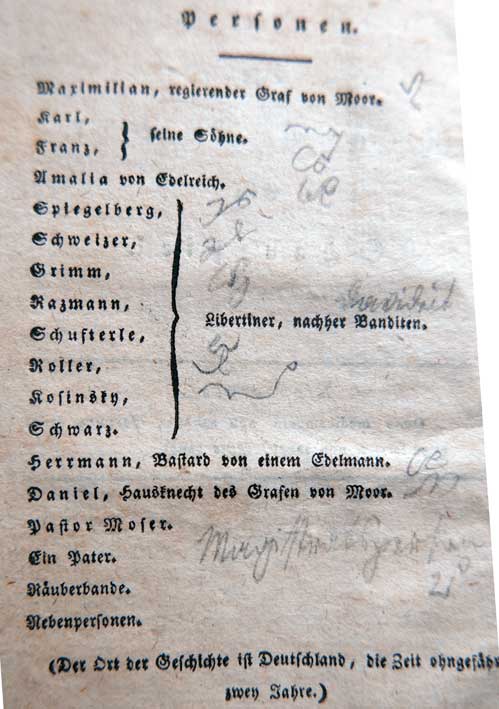 Personen.
Maximilian, regierender Graf von Moor.
Karl,
Franz, } seine Söhne.
Amalia von Edelreich.
Spiegelberg,
Schweizer,
Grimm,
Razmann,
Schufterle, } Libertiner, nachher Banditen.
Roller,
Kosinsky,
Schwarz.
Herrmann, Bastard von einem Edelmann.
Daniel, Hausknecht des Grafen von Moor.
Pastor Moser.
Ein Pater.
Magistratsperson
Räuberbande.
Nebenpersonen.
(Der Ort der Geschichte ist Deutschland, die Zeit ohngefähr
zwey Jahre.)